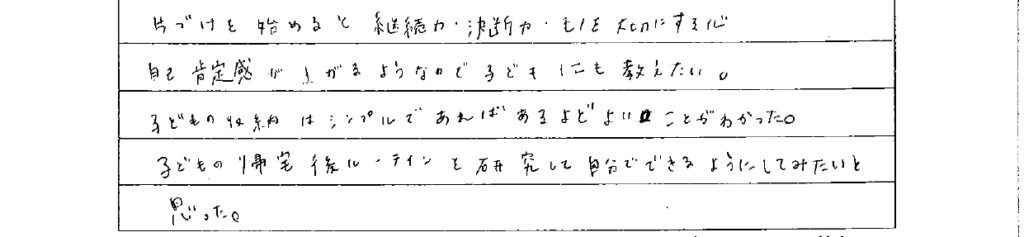 片づけを始めると継続力・決断力・モノを大切にする心
自己肯定感が上がるようなので子どもにも教えたい。
子どもの収納はシンプルであればあるほどよいことがわかった。
子どもの帰宅後ルーテインを研究して自分でできるようにしてみたいと
思った。